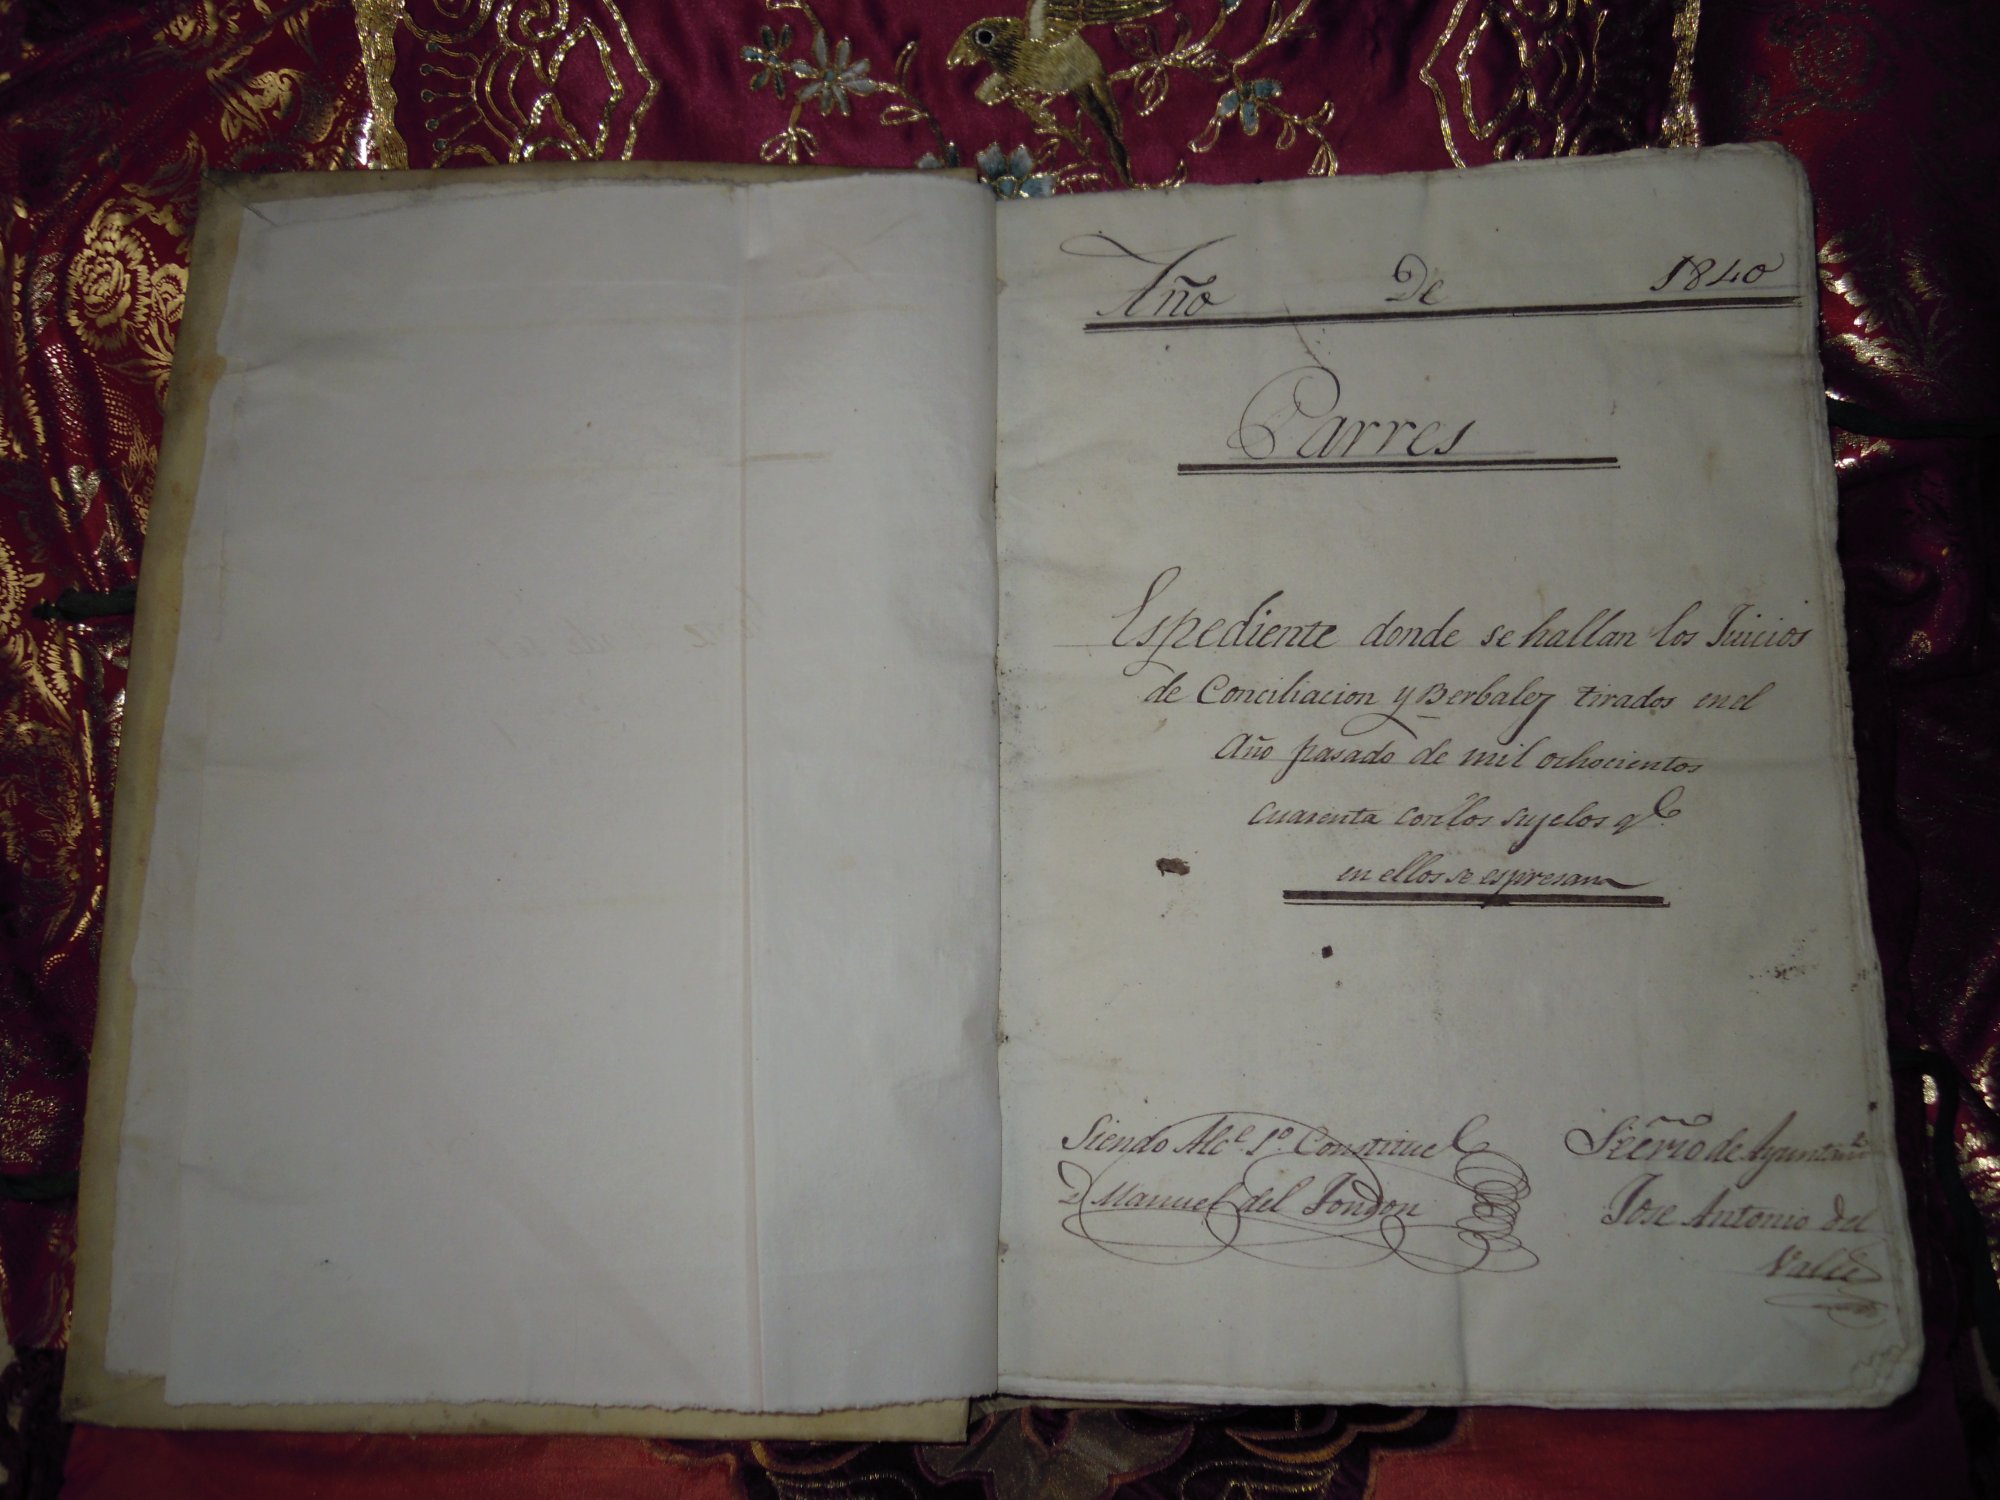 Año De 1840
Parres
Espediente donde se hallan los Juicios
de Conciliacion y Berbales tirados en el
Año pasado de mil ochocientos
cuarenta con los sujetos qe.
en ellos se espresan
Siendo Alce. 1o. Constitucl
Dn Manuel del Fondon
Secrño de Ayuntamto
Jose Antonio del
Valle